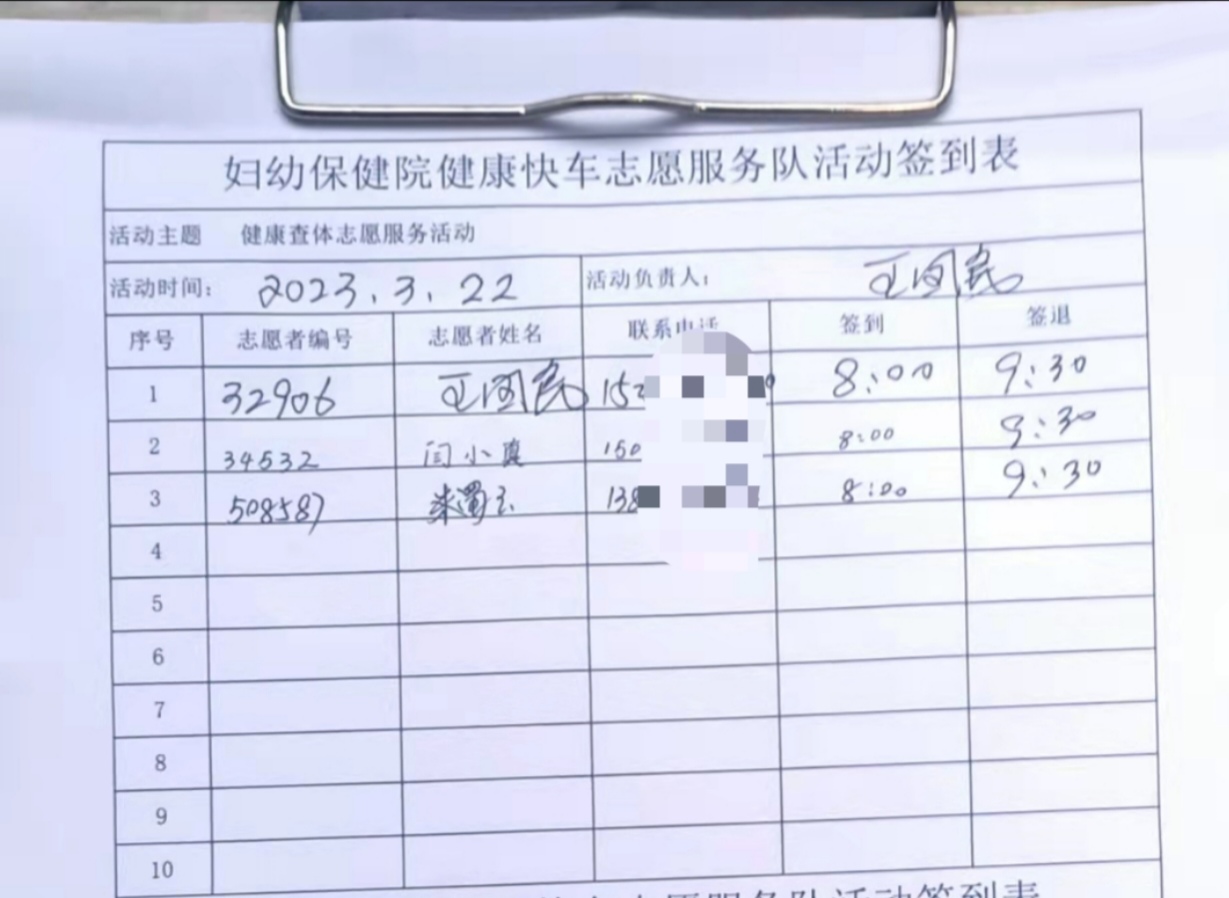 妇幼保健院健康快车志愿服务队活动签到表
活动主题 健康查体志愿服务活动
活动时间: 2023.3.22 活动负责人: 王国民
序号 志愿者编号 志愿者姓名 联系电话 签到 签退
1 32906 王国民 152 8:00 9:30
2 34532 闫小真 150 8:00 9:30
3 508587 138 8:00 9:30
4
5
6
7
8
9
10
志愿服务队活动签到表